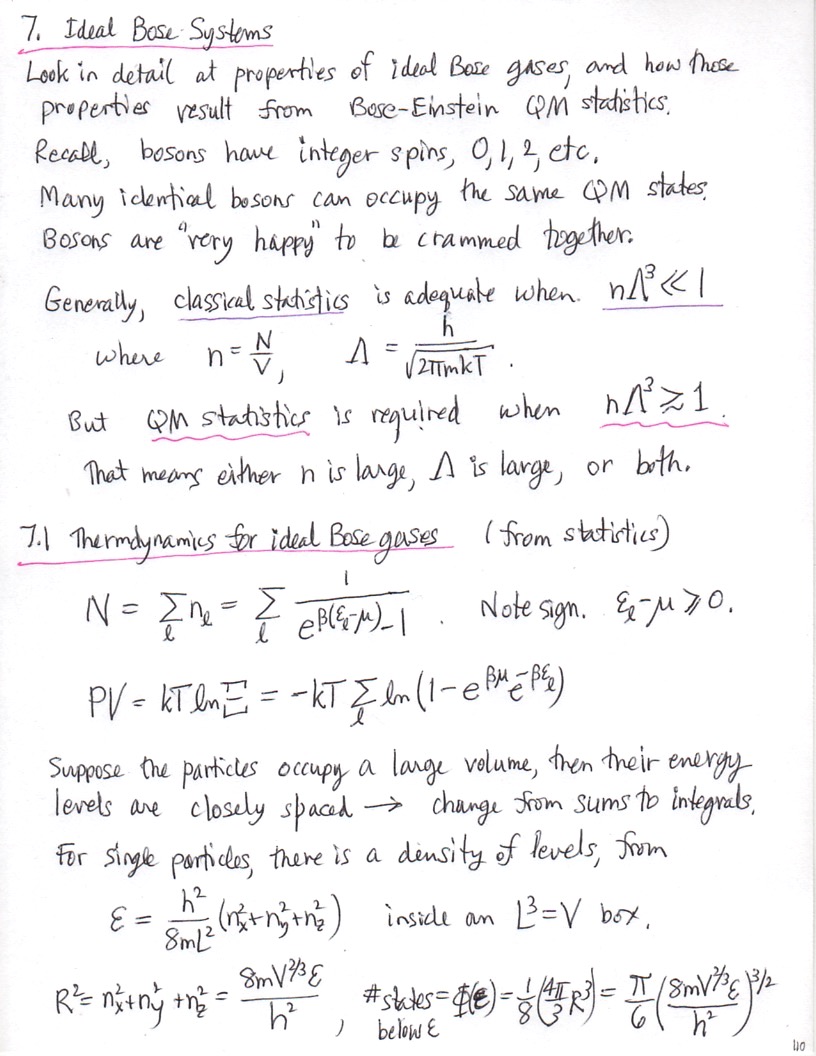 7. Ideal Bose Systems
Look in detail at properties of ideal Bose gases, and how those
properties result from Bose-Einstein QM statistics.
Recall, bosons have integer spins, 0, 1, 2, etc.
Many identical bosons can occupy the same QM states.
Bosons are "very happy" to be crammed together.
Generally, classical statistics is adequate when nΛ³ ≪ 1
where n = N/V, Λ = h/√(2πmkT).
But QM statistics is required when nΛ³ ≳ 1.
That means either n is large, Λ is large, or both.
7.1 Thermdynamics for ideal Bose gases (from statistics)
N = Σ_ℓ n_ℓ = Σ_ℓ 1/(e^{β(ε_ℓ-μ)} - 1). Note sign. ε_ℓ-μ ≥ 0.
PV = kT ln Ξ = -kT Σ_ℓ ln(1 - e^{βμ} e^{-βε_ℓ})
Suppose the particles occupy a large volume, then their energy
levels are closely spaced → change from sums to integrals.
For single particles, there is a density of levels, from
ε = h²/8mL² (n_x² + n_y² + n_z²) inside an L³ = V box.
R² = n_x² + n_y² + n_z² = 8mV^{2/3}ε/h², # states below ε = Φ(ε) = 1/8 (4π/3 R³) = π/6 (8mV^{2/3}ε/h²)^{3/2}
110